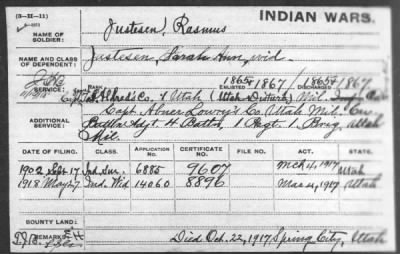 (3—II—11)
INDIAN WARS.
NAME OF SOLDIER: Justesen, Rasmus
NAME AND CLASS OF DEPENDENT: Justesen, Sarah Ann, wid.
SERVICE: RANK ENLISTED 1865 1867 DISCHARGED 1865 1867
Capt. Allred's Co. 1 Utah (Utah Disturb) Mil.
ADDITIONAL SERVICE: Capt Abner Lowry's Co. Utah Mil. Cav.
Adgt. H. Battn, 1 Regt. 1 Brig, Utah
Mil.
DATE OF FILING. CLASS. APPLICATION NO. CERTIFICATE NO. FILE NO. ACT. STATE.
1902 Sept 17 Ind. Sur. 6885 9607 Mch 4, 1917 Utah
1918 May 27 Ind. Wid 14060 8896 Mar 4, 1917 Utah
COUNTY LAND:
REMARKS:
Died Oct. 22, 1917 Spring City, Utah